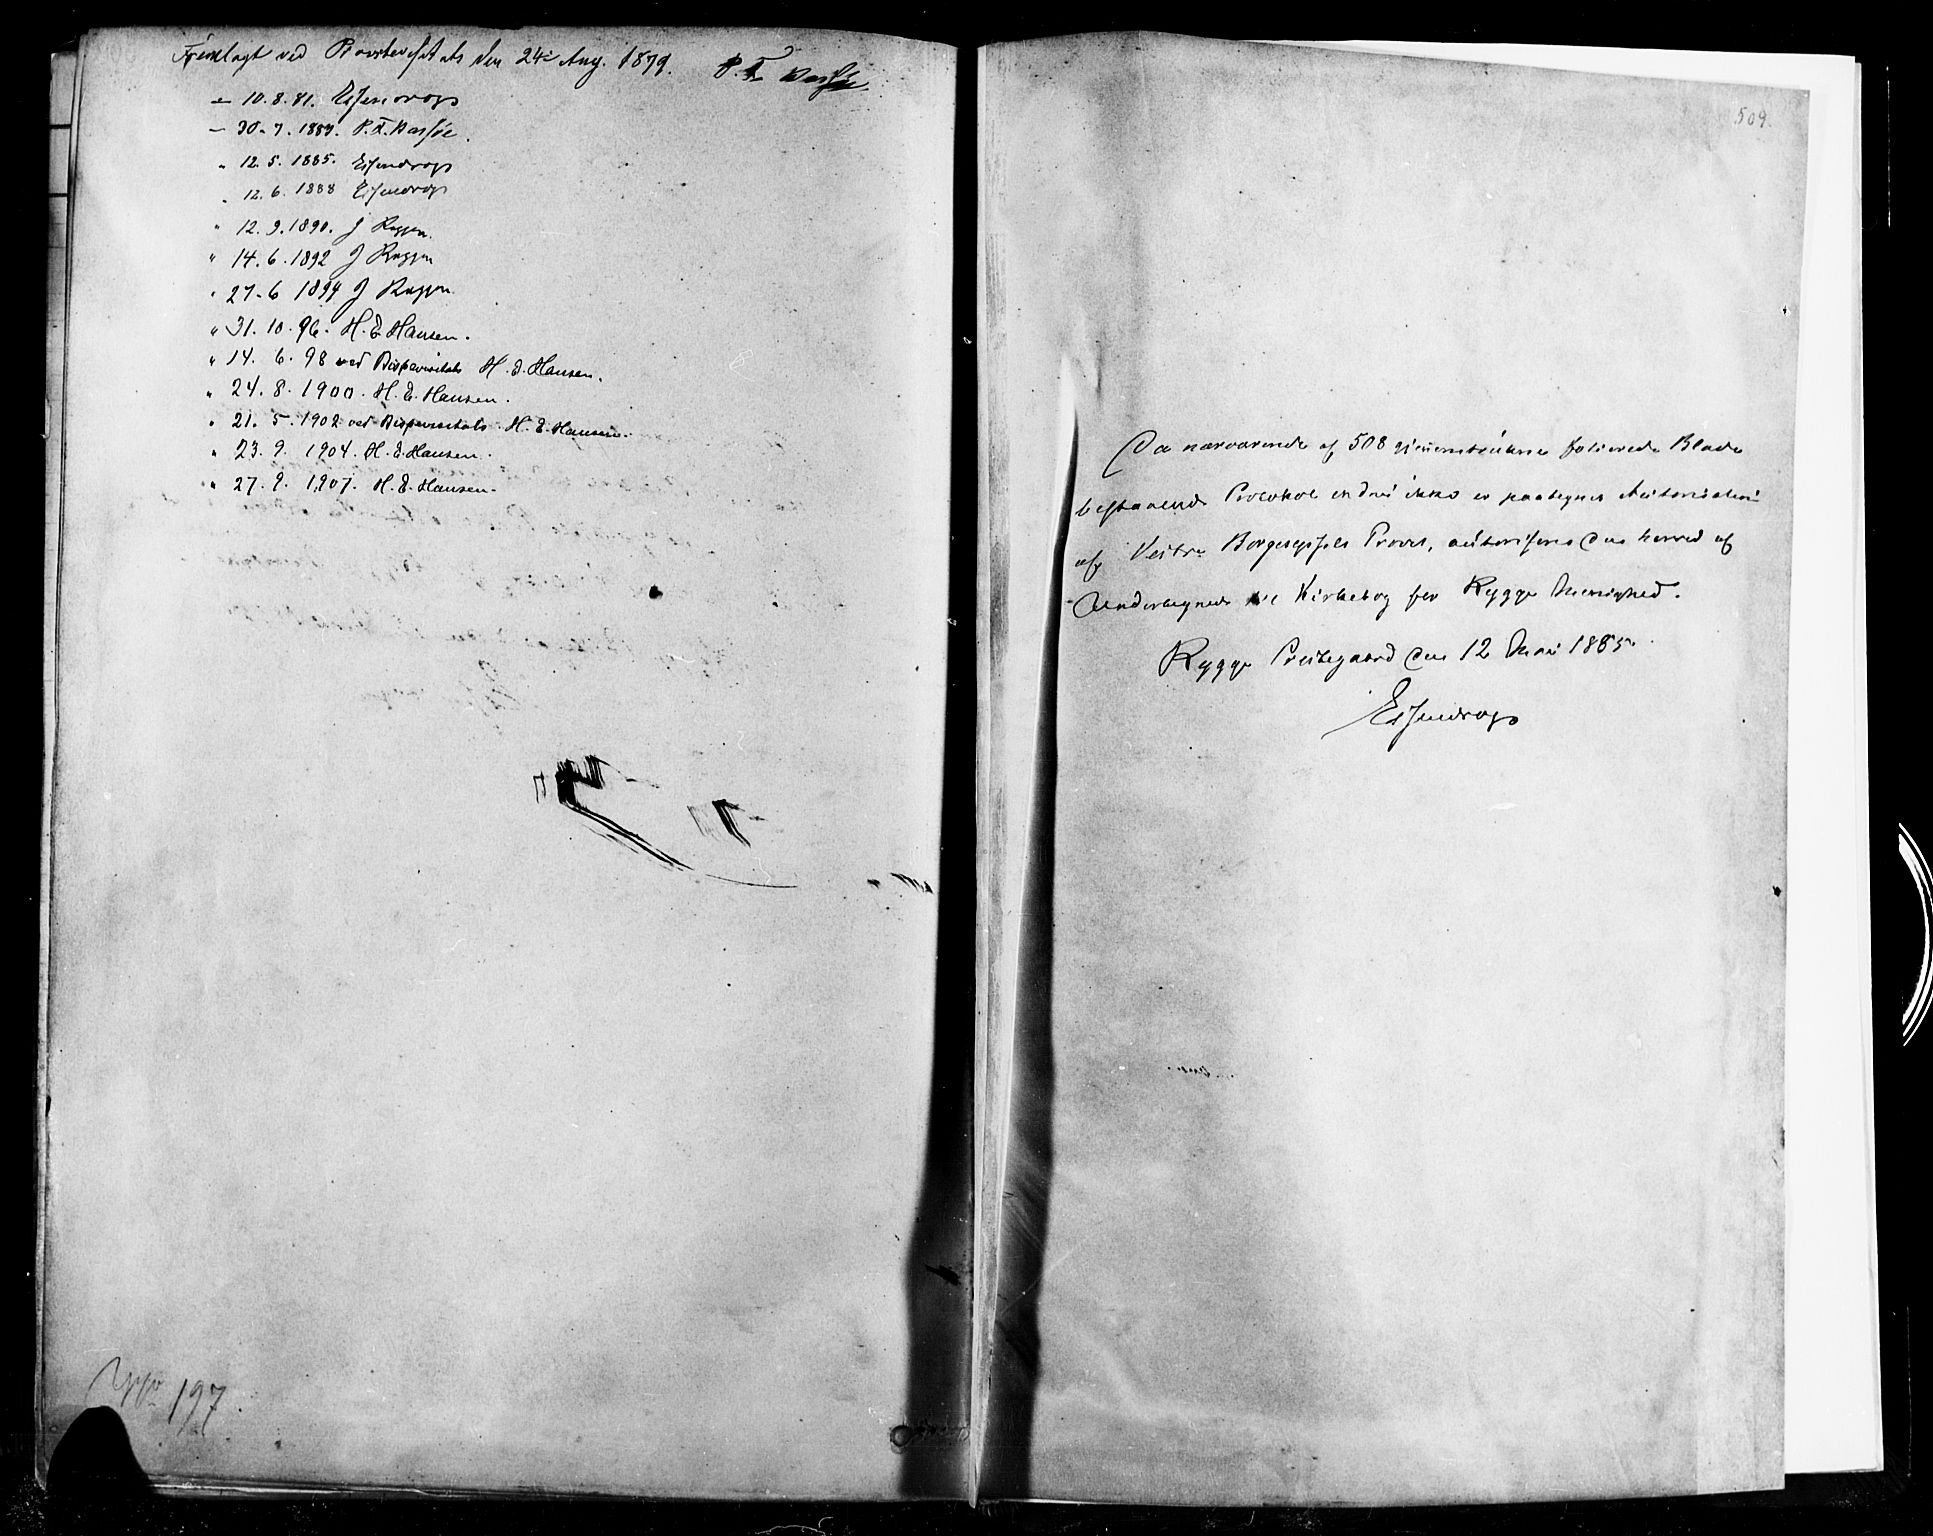 Fremlagt ved Provstevisitats den 24de Aug. 1879. P. F. Bassøe
— 10.8.81. Essendrop
— 30.7.1883. P. F. Bassøe.
" 12.5.1885. Essendrop
" 12.6.1888 Essendrop
" 12.9.1890. J
" 14.6.1892 J
" 27.6 1894 J
" 31.10.96. H. E Hansen.
" 14.6.98 ved Bispevisitats H. E. Hansen.
" 24.8.1900. H. E. Hansen.
" 21.5.1902 ved Bispevisitats. H. E. Hansen.
" 23.9.1904. H. E. Hansen.
" 27.9.1907. H. E. Hansen.
197.
509.
Da nærværende af 508 gjennemtrukne folierede Blade
bestaaende Protokol endnu ikke er paategnet Autorisation
af Vestre Borgesyssels Provst, autoriseres den herved af
Undertegnede til Kirkebog for Rygge Menighed.
Rygge Prestegaard den 12 Mai 1885.
Essendrop